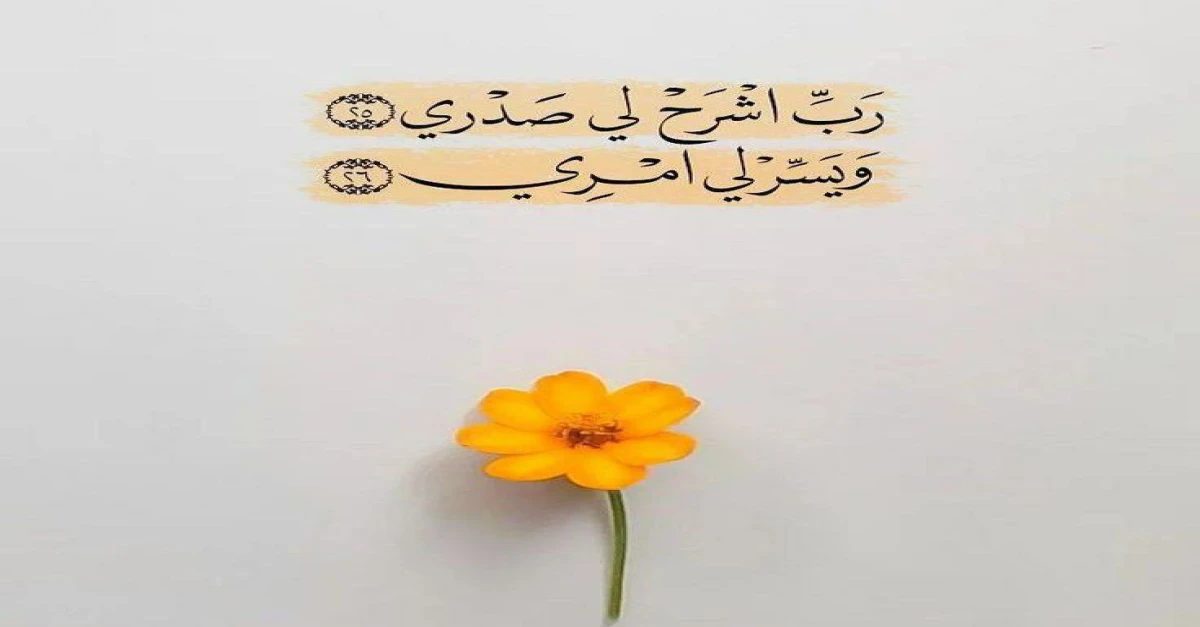 رَبِّ اشْرَحْ لِي صَدْرِي ٢٥
وَيَسِّرْ لِي أَمْرِي ٢٦